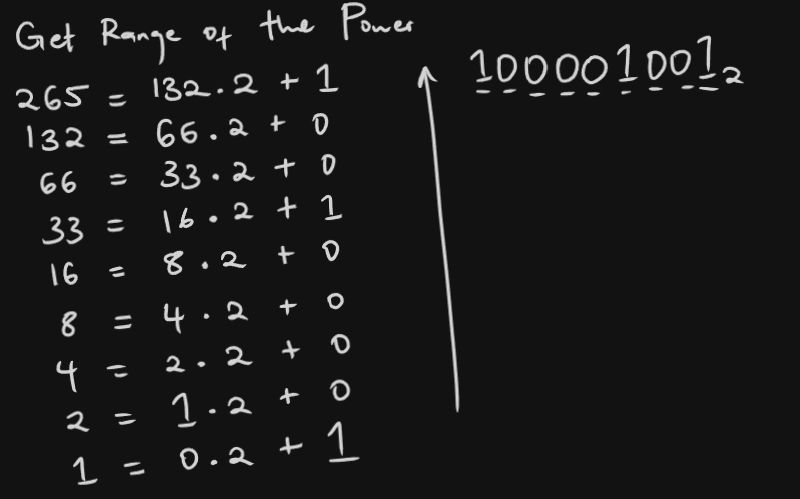 Get Range of the Power
265 = 132.2 + 1
132 = 66.2 + 0
66 = 33.2 + 0
33 = 16.2 + 1
16 = 8.2 + 0
8 = 4.2 + 0
4 = 2.2 + 0
2 = 1.2 + 0
1 = 0.2 + 1
100001001₂